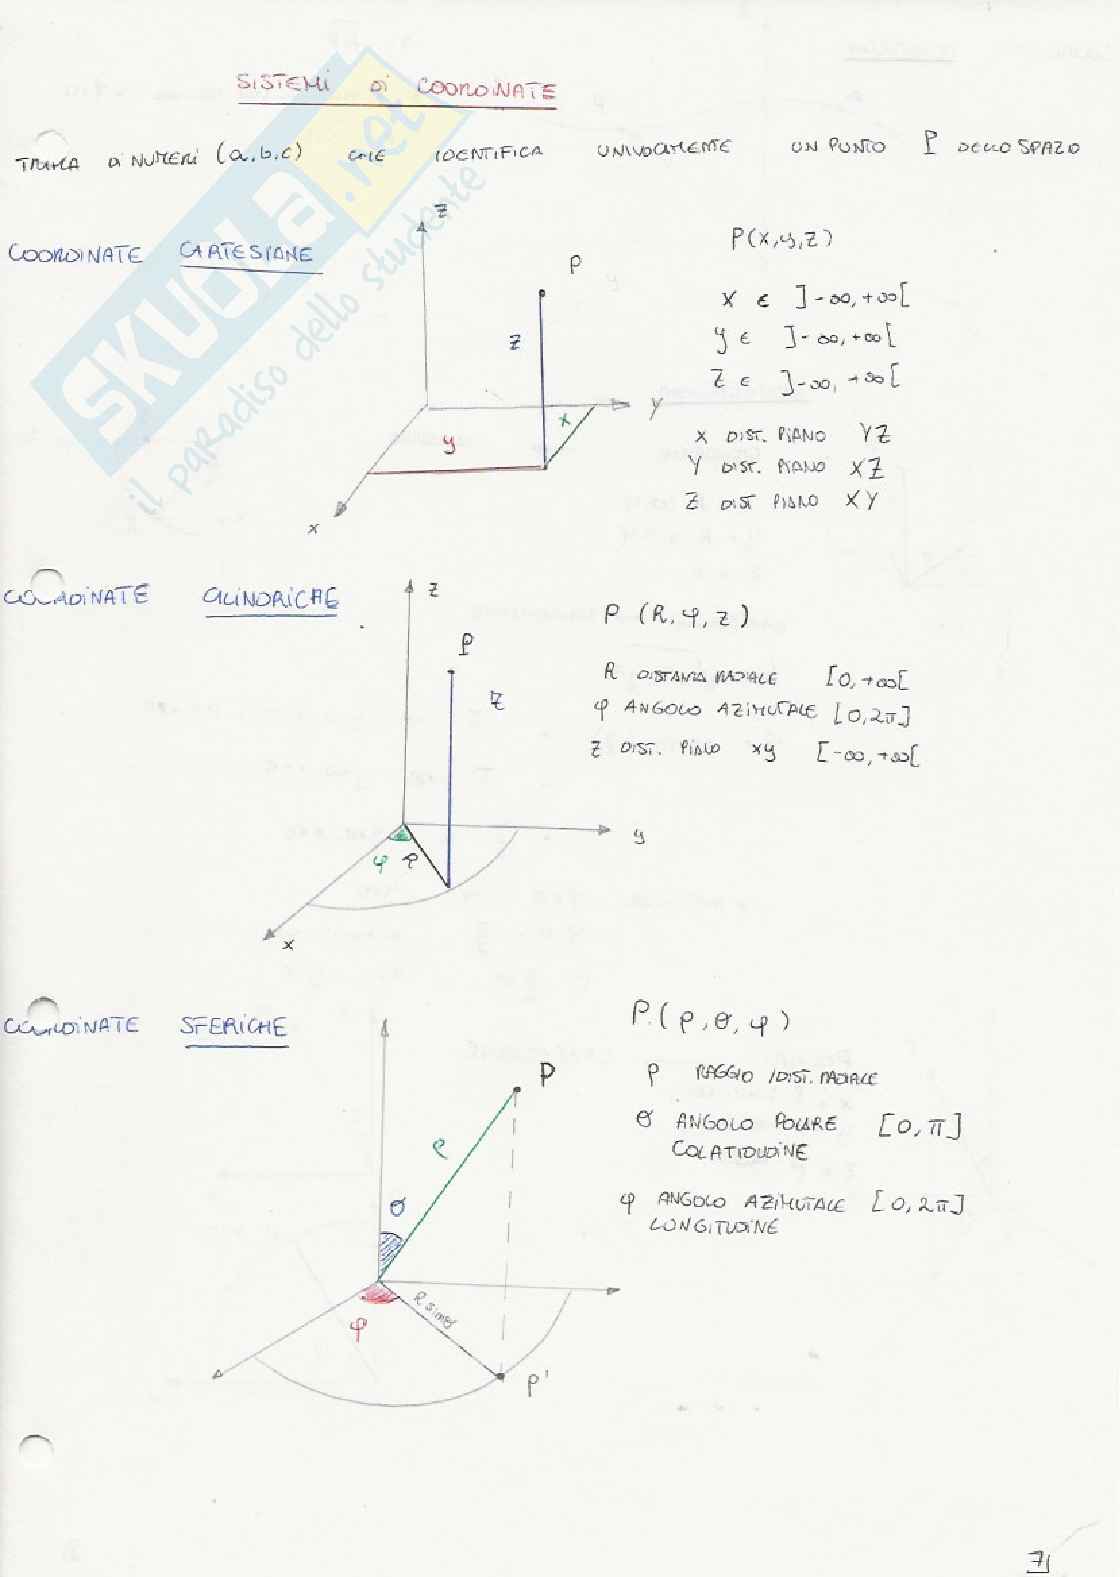 SISTEMI di COORDINATE
TERNA di NUMERI (a,b,c) CHE IDENTIFICA UNIVOCAMENTE UN PUNTO P DELLO SPAZIO
SKUOLA.net
il paradiso dello studente
COORDINATE CARTESIANE
z
P
z
y
x
y
x
P(x,y,z)
x ∈ ]-∞,+∞[
y ∈ ]-∞,+∞[
z ∈ ]-∞,+∞[
X DIST. PIANO YZ
Y DIST. PIANO XZ
Z DIST PIANO XY
COORDINATE CILINDRICHE
z
P
z
φ R
y
x
P (R, φ, z)
R DISTANZA RADIALE [0,+∞[
φ ANGOLO AZIMUTALE [0,2π]
Z DIST. PIANO xy [-∞,+∞[
COORDINATE SFERICHE
P
ρ
θ
φ
R sinθ
P'
P.(ρ,θ,φ)
ρ RAGGIO /DIST. RADIALE
θ ANGOLO POLARE [0,π]
COLATIDUDINE
φ ANGOLO AZIMUTALE [0,2π]
LONGITUDINE
7